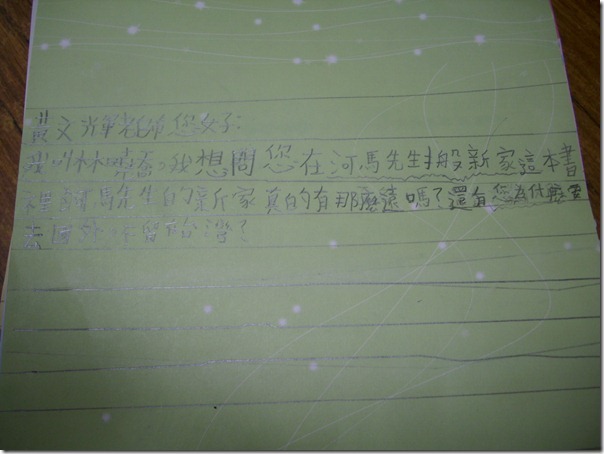 黃文輝老師您好:
我叫林喬,我想問您在河馬先生搬新家這本書
裡河馬先生的新家真的有那麼遠嗎?還有您為什麼要
去國外不留在台灣?